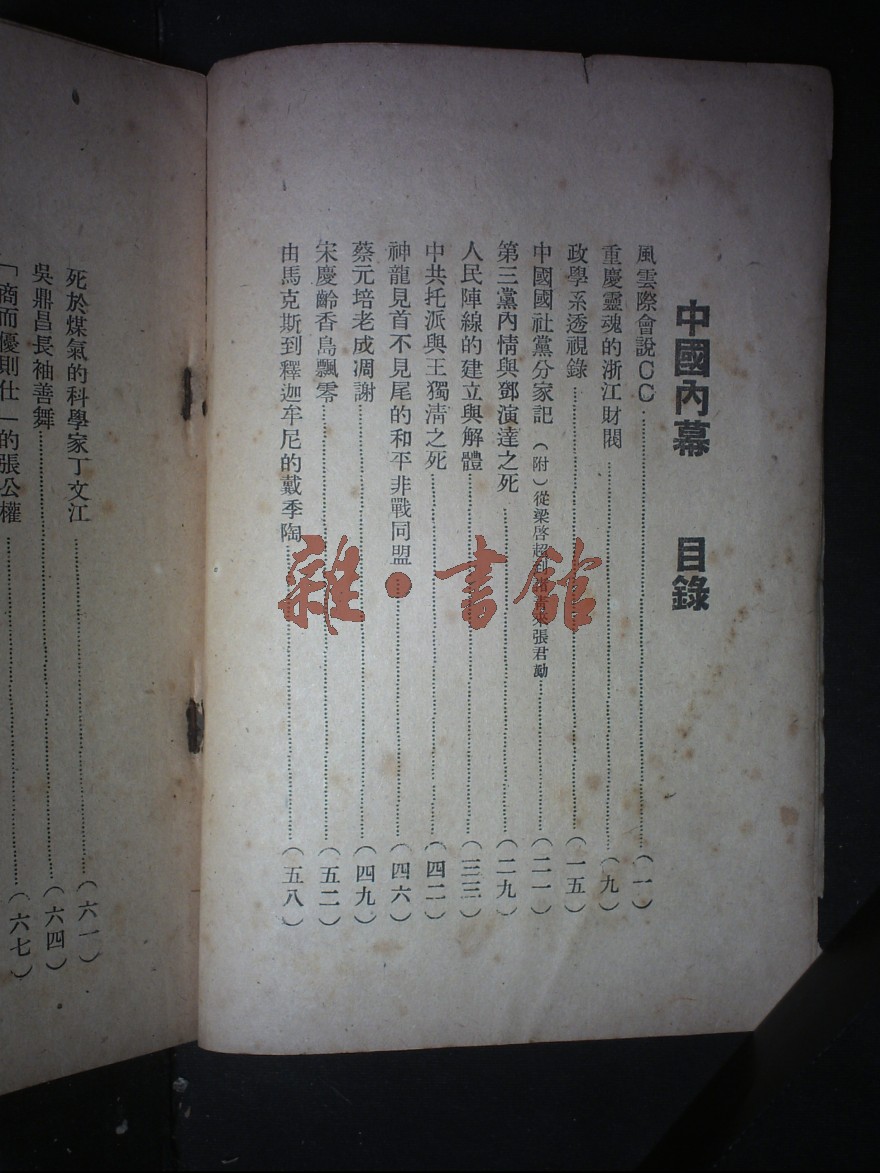 中國內幕 目錄
風雲際會說CC…………(一)
重慶靈魂的浙江財閥…………(九)
政學系透視錄…………(一五)
中國國社黨分家記(附)從梁啓超到諸青來張君勱…………(二一)
第三黨內情與鄧演達之死…………(二九)
人民陣線的建立與解體…………(三三)
中共托派與王獨清之死…………(四二)
神龍見首不見尾的和平非戰同盟…………(四六)
蔡元培老成凋謝…………(四九)
宋慶齡香島飄零…………(五二)
由馬克斯到釋迦牟尼的戴季陶…………(五八)
死於煤氣的科學家丁文江…………(六一)
吳鼎昌長袖善舞…………(六四)
「商而優則仕」的張公權…………(六七)
雜·書館